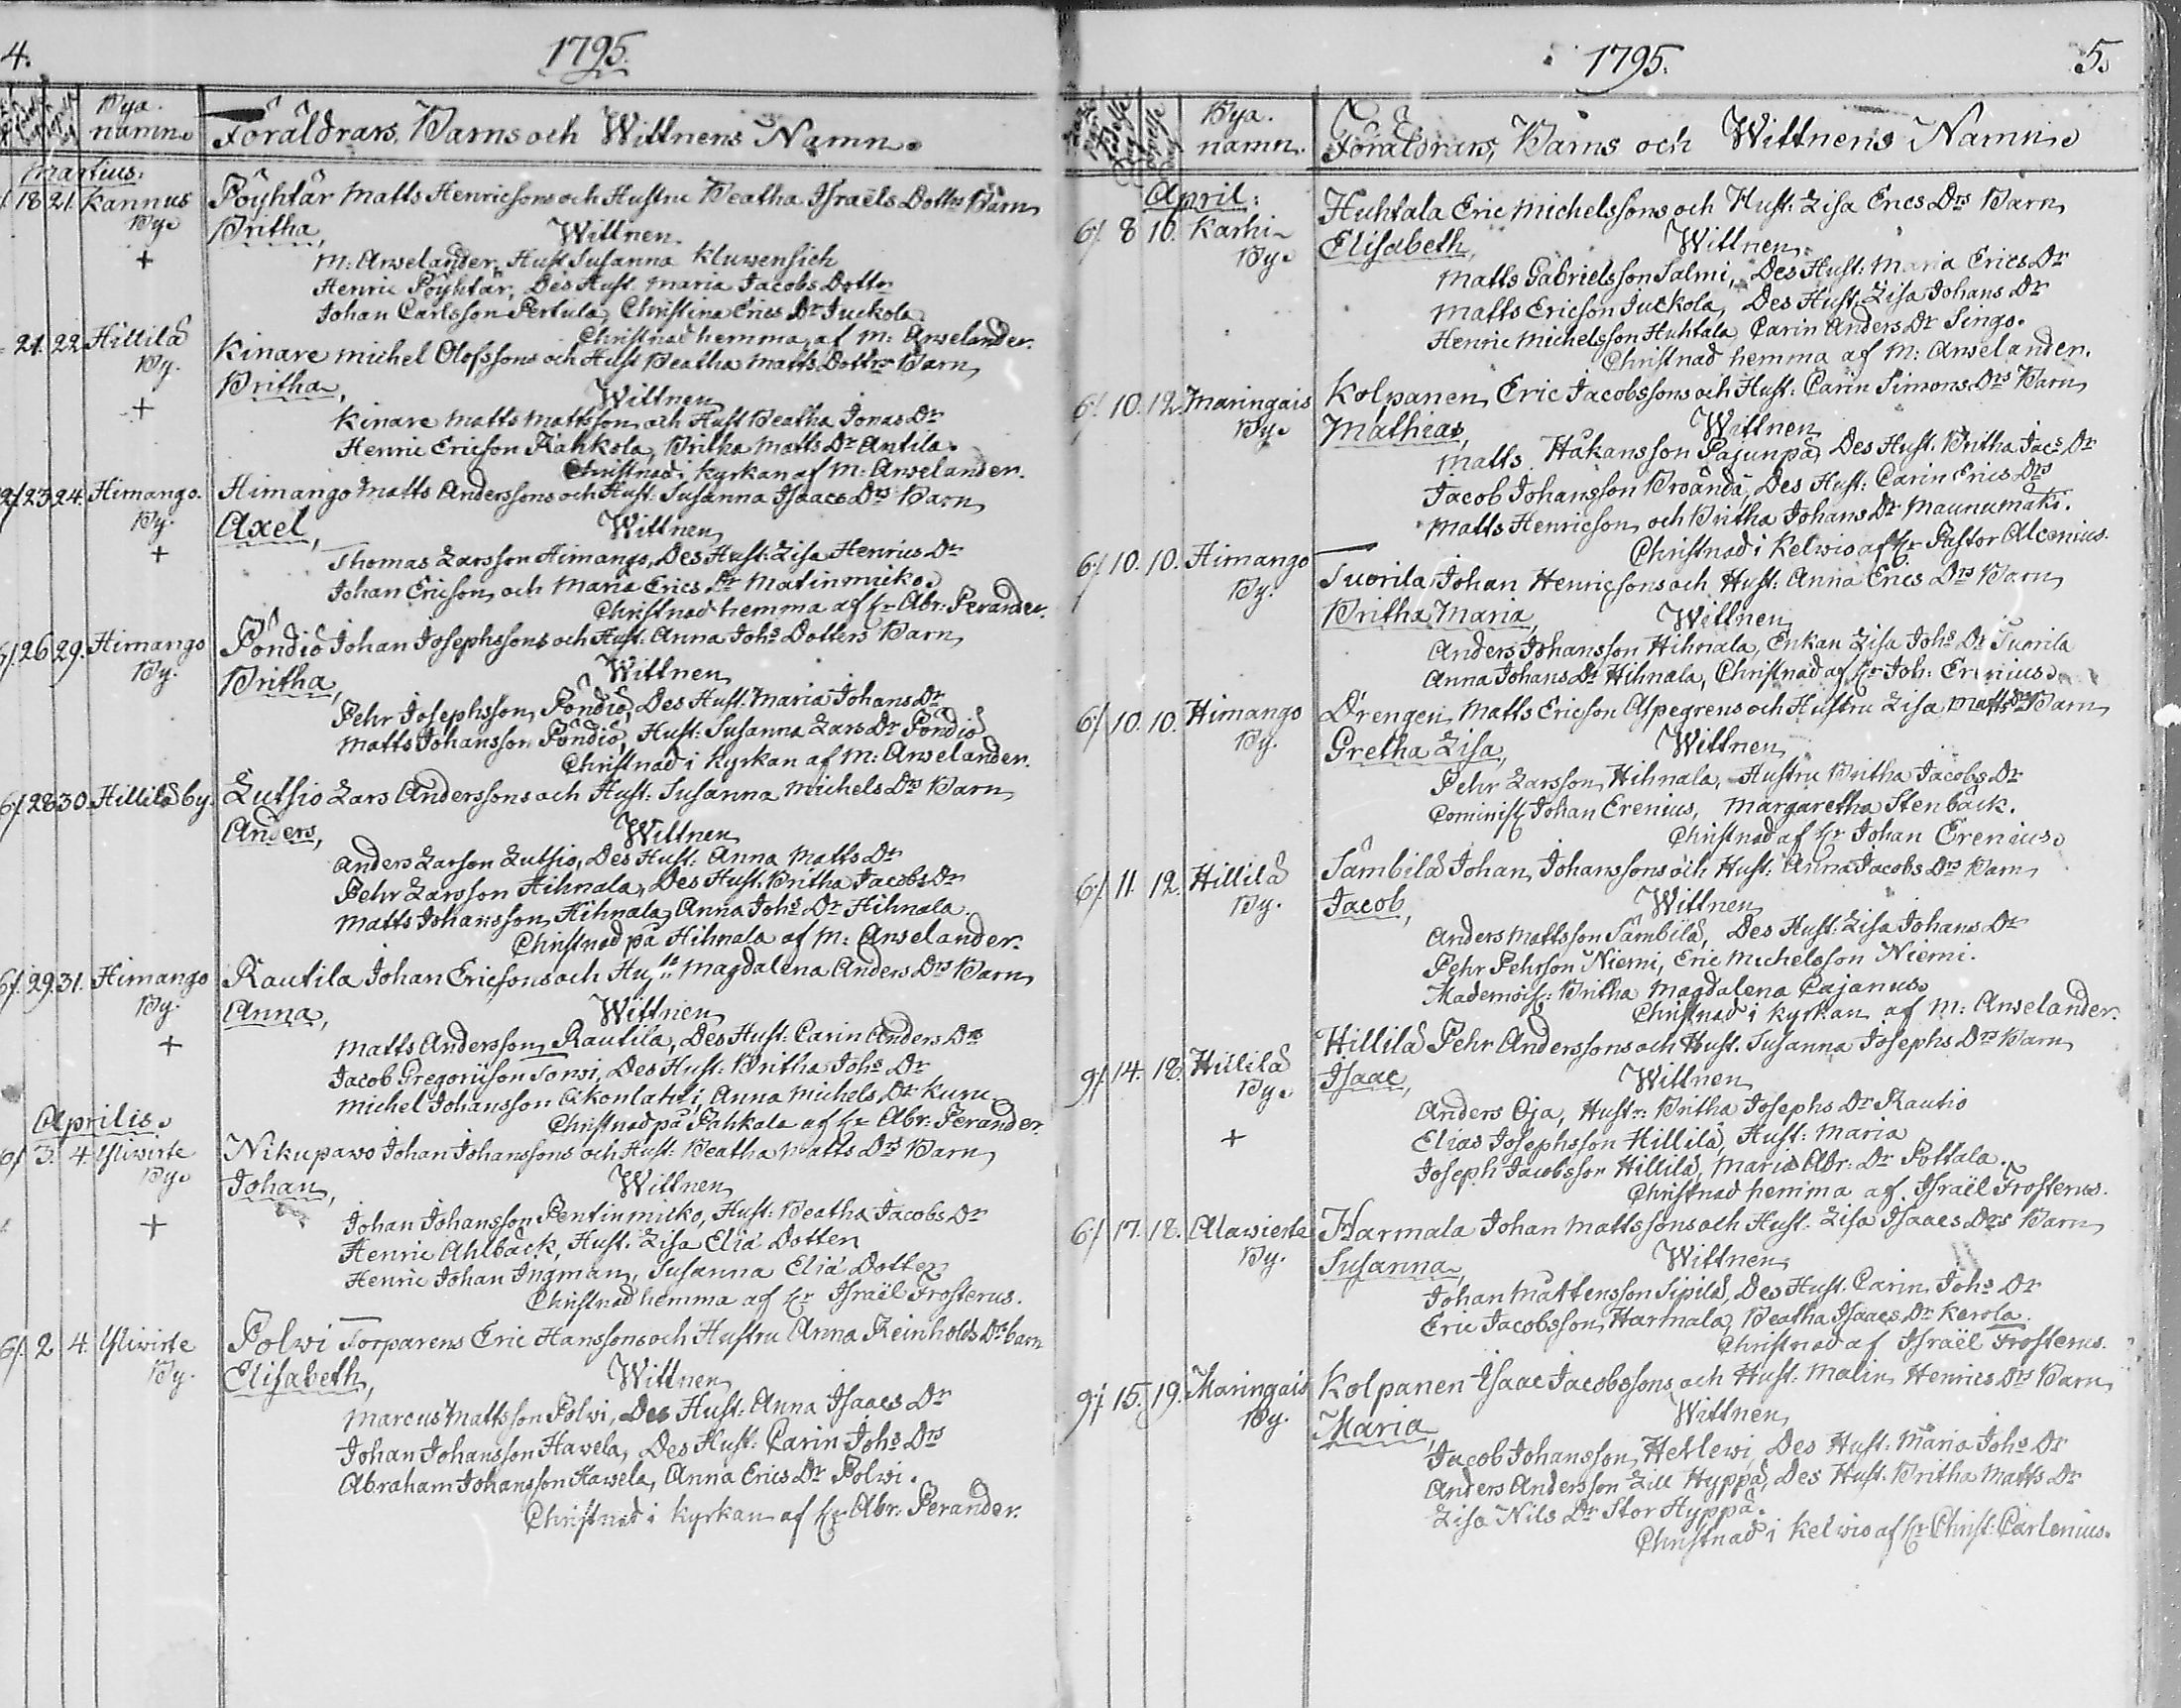 4.
1795.
Bya.
namn.
Föräldrars, Barns och Wittnens Namn.
Martius.
18 21. Kannus By. Pöyhtär Matts Henricsons och Hustru Beatha Israëls Dotters Barn
Britha, Wittnen
+ M: Arwelander, Hust Susanna Kluwensich
Henric Pöyhtär, Des Hust. Maria Jacobs Dotter
Johan Carlsson Pertula, Christina Erics Dr Juckola
Christnad hemma, af M: Arwelander.
21. 22 Hillilä By. Kinare Michel Olofssons och Hust Beatha Matts Dottrs Barn
Britha, Wittnen
+ Kinare Matts Mattsson och Hust Beatha Jonas Dr
Henric Ericson Kahkola, Britha Matts Dr Antila.
Christnad i kyrkan af M: Arwelander.
23 24. Himango. By. Himango Matts Anderssons och Hust: Susanna Isaacs Drs Barn
Axel, Wittnen
+ Thomas Larsson Himango, Des Hust: Lisa Henrics Dr
Johan Ericson och Maria Erics Dr Matinmicko.
Christnad hemma af Hr Abr: Perander.
6/. 26 29. Himango By. Pöndiö Johan Josephssons och Hust. Anna Johs Dotters Barn
Britha, Wittnen
Pehr Josephsson Pöndiö, Des Hust. Maria Johans Dr
Matts Johansson Pöndiö, Hust: Susanna Lars Dr Pöndiö
Christnad i kyrkan af M: Arwelander.
6/. 28 30. Hillilä by. Lutsio Lars Anderssons och Hust: Susanna Michels Drs Barn
Anders, Wittnen
Anders Larson Lutsio, Des Hust: Anna Matts Dr
Pehr Larsson Hihnala, Des Hust. Britha Jacobs Dr
Matts Johansson Hihnala, Anna Johs Dr Hihnala.
Christnad på Hihnala af M: Arwelander.
6/. 29. 31. Himango By. Rautila Johan Ericsons och Hust: Magdalena Anders Drs Barn
Anna, Wittnen
+ Matts Andersson Rautila, Des Hust: Carin Anders Drs
Jacob Gregoriison Torwi, Des Hust: Britha Johs Dr
Michel Johansson Akonlahti, Anna Michels Dr Kuru
Christnad på Pahkala af Hr Abr: Perander.
Aprilis.
6/ 3. 4. Yliwirte By. Nikupawo Johan Johanssons och Hust: Beatha Matts Drs Barn
Johan, Wittnen
+ Johan Johansson Pentinmicko, Hust: Beatha Jacobs Dr
Henric Ahlbäck, Hust. Lisa Eliä Dotter
Henric Johan Ingman, Susanna Eliä Dotter
Christnad hemma af Hr Israël Frosterus.
6/. 2 4. Yliwirte By. Polwi Torparens Eric Hanssons och Hustru Anna Reinholds Drs barn
Elisabeth, Wittnen
Marcus Mattsson Polwi, Des Hust: Anna Isaacs Dr
Johan Johansson Hawela, Des Hust: Carin Johs Drs
Abraham Johansson Hawela, Anna Erics Dr Polwi.
Christnad i kyrkan af Hr Abr: Perander.
1795.
5.
Bya.
namn.
Föräldrars, Barns och Wittnens Namn.
April:
6/. 8 10. Karhi By. Huhtala Eric Michelssons och Hust: Lisa Erics Drs Barn
Elisabeth, Wittnen.
Matts Gabrielsson Salmi, Des Hust: Maria Erics Dr
Matts Ericson Juckola, Des Hust. Lisa Johans Dr
Henric Michelsson Huhtala, Carin Anders Dr Singo.
Christnad hemma af M: Arwelander.
6/. 10. 12. Maringais By. Kolpanen Eric Jacobssons och Hust: Carin Simons Drs Barn
Mathias, Wittnen
Matts Håkansson Pajunpä, Des Hust. Britha Jacs Dr
Jacob Johansson Broända, Des Hust: Carin Erics Drs
Matts Henricson och Britha Johans Dr Maunumäki.
Christnad i Kelwio af Hr Pastor Alcenius.
6/. 10. 10. Himango By. Tuorila Johan Henricsons och Hust: Anna Erics Drs Barn
Britha Maria, Wittnen
Anders Johansson Hihnala, Enkan Lisa Johs Dr Tuorila
Anna Johans Dr Hihnala, Christnad af Hr Joh: Erenius.
6/. 10. 10. Himango By. Drengen Matts Ericson Aspegrens och Hustru Lisa Matts Drs Barn
Gretha Lisa, Wittnen
Pehr Larsson Hihnala, Hustru Britha Jacobs Dr
Cominist. Johan Erenius, Margaretha Stenbäck.
Christnad af Hr Johan Erenius.
6/. 11. 12. Hillilä By. Sämbilä Johan Johanssons och Hust: Anna Jacobs Drs Barn
Jacob, Wittnen
Anders Mattsson Sämbilä, Des Hust: Lisa Johans Dr
Pehr Pehrson Niemi, Eric Michelsson Niemi.
Mademois: Britha Magdalena Cajanus.
Christnad i kyrkan af M: Arwelander.
9/. 14. 18. Hillilä By. Hillilä Pehr Anderssons och Hust. Susanna Josephs Drs Barn
Isaac, Wittnen
Anders Oja, Hustr: Britha Josephs Dr Rautio
+ Elias Josephsson Hillilä, Hust: Maria
Joseph Jacobsson Hillilä, Maria Abr: Dr Pottala.
Christnad hemma af Israël Frosterus.
6/. 17. 18. Alawierte By. Harmala Johan Mattssons och Hust. Lisa Isaacs Drs Barn
Susanna, Wittnen
Johan Mattensson Sipilä, Des Hust. Carin Johs Dr
Eric Jacobsson Harmala, Beatha Isaacs Dr Kerola.
Christnad af Israël Frosterus.
9/. 15. 19. Maringais By. Kolpanen Isaac Jacobssons och Hust: Malin Henrics Drs Barn
Maria, Wittnen
Jacob Johansson Hetlewi, Des Hust: Maria Johs Dr
Anders Andersson Lill Hyppä, Des Hust. Britha Matts Dr
Lisa Nils Dr Stor Hyppä.
Christnad i Kelwio af Hr Christ: Carlenius.